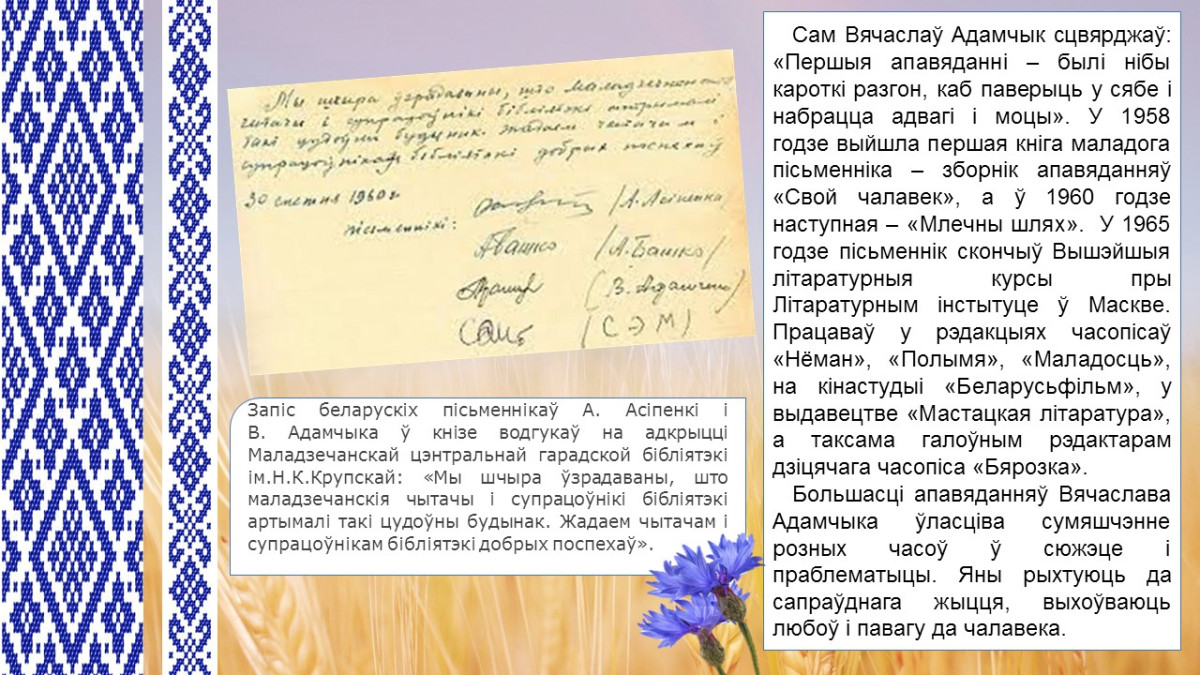 Мы шчыра ўзрадаваны, што маладзечанскія
чытачы і супрацоўнікі бібліятэкі атрымалі
такі цудоўны будынак. Жадаем чытачам і
супрацоўнікам бібліятэкі добрых поспехаў
1960 г
пісьменнікі:
/А. Асіпенка/
АВашко /А. Башко/
(В. Адамчык)
(С Э М)
Запіс беларускіх пісьменнікаў А. Асіпенкі і
В. Адамчыка ў кнізе водгукаў на адкрыцці
Маладзечанскай цэнтральнай гарадской бібліятэкі
ім.Н.К.Крупскай: «Мы шчыра ўзрадаваны, што
маладзечанскія чытачы і супрацоўнікі бібліятэкі
артымалі такі цудоўны будынак. Жадаем чытачам і
супрацоўнікам бібліятэкі добрых поспехаў».
Сам Вячаслаў Адамчык сцвярджаў:
«Першыя апавяданні – былі нібы
кароткі разгон, каб паверыць у сябе і
набрацца адвагі і моцы». У 1958
годзе выйшла першая кніга маладога
пісьменніка – зборнік апавяданняў
«Свой чалавек», а ў 1960 годзе
наступная – «Млечны шлях». У 1965
годзе пісьменнік скончыў Вышэйшыя
літаратурныя курсы пры
Літаратурным інстытуце ў Маскве.
Працаваў у рэдакцыях часопісаў
«Нёман», «Полымя», «Маладосць»,
на кінастудыі «Беларусьфільм», у
выдавецтве «Мастацкая літаратура»,
а таксама галоўным рэдактарам
дзіцячага часопіса «Бярозка».
Большасці апавяданняў Вячаслава
Адамчыка ўласціва сумяшчэнне
розных часоў ў сюжэце і
праблематыцы. Яны рыхтуюць да
сапраўднага жыцця, выхоўваюць
любоў і павагу да чалавека.